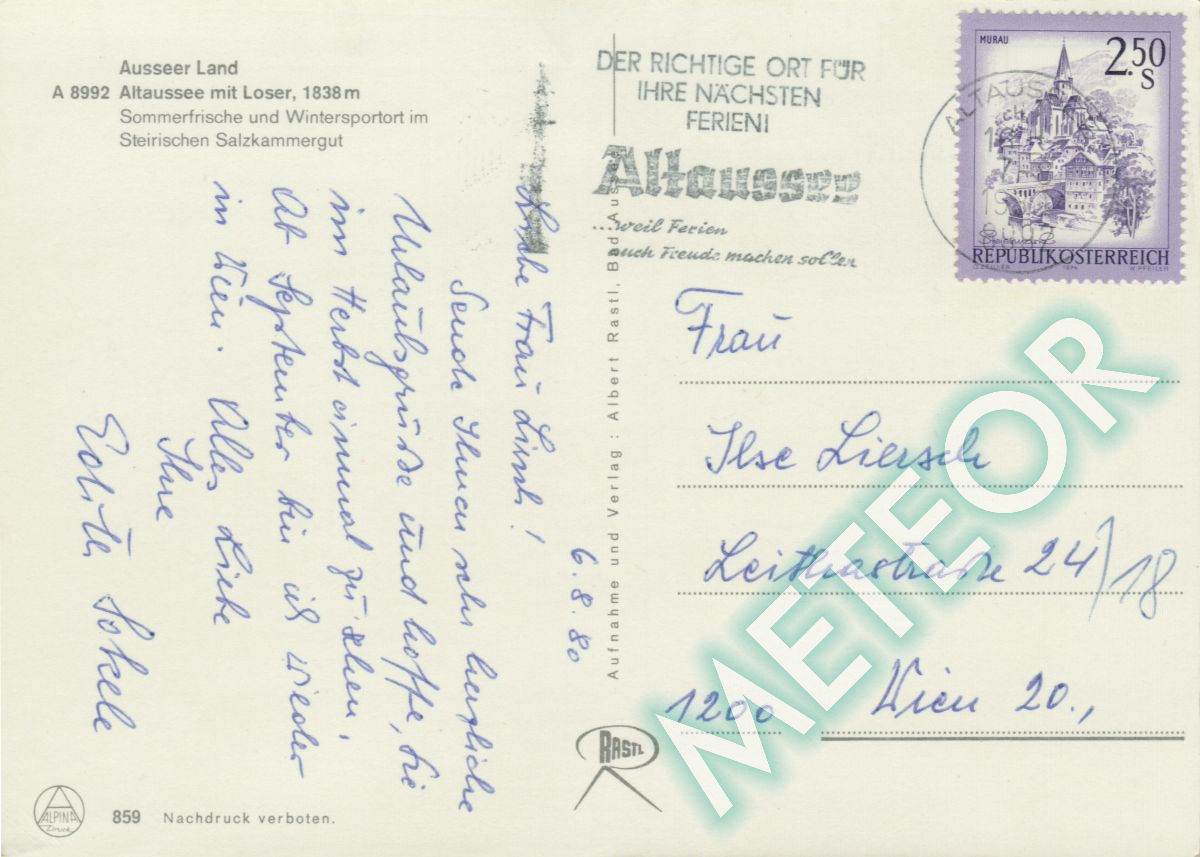 Ausseer Land
A 8992 Altaussee mit Loser, 1838 m
Sommerfrische und Wintersportort im
Steirischen Salzkammergut
DER RICHTIGE ORT FÜR
IHRE NÄCHSTEN
FERIEN!
Altaussee
...weil Ferien
auch Freude machen sollen
MURAU
2.50
S
REPUBLIK ÖSTERREICH
W. PFEILER
ALTAUSSEE
6.8.80
Liebe Frau
Sende Ihnen sehr herzliche
Urlaubsgrüße und hoffe, Sie
im Herbst einmal zu sehen.
Ab September bin ich wieder
in Wien. Alles Liebe
Ihre
Edith
Aufnahme und Verlag: Albert Rastl, Bad Aus
Frau
Ilse Liersch
Leithastraße 24/18
1200 Wien 20.,
RASTL
METEOR
ALPINA
Druck
859 Nachdruck verboten.